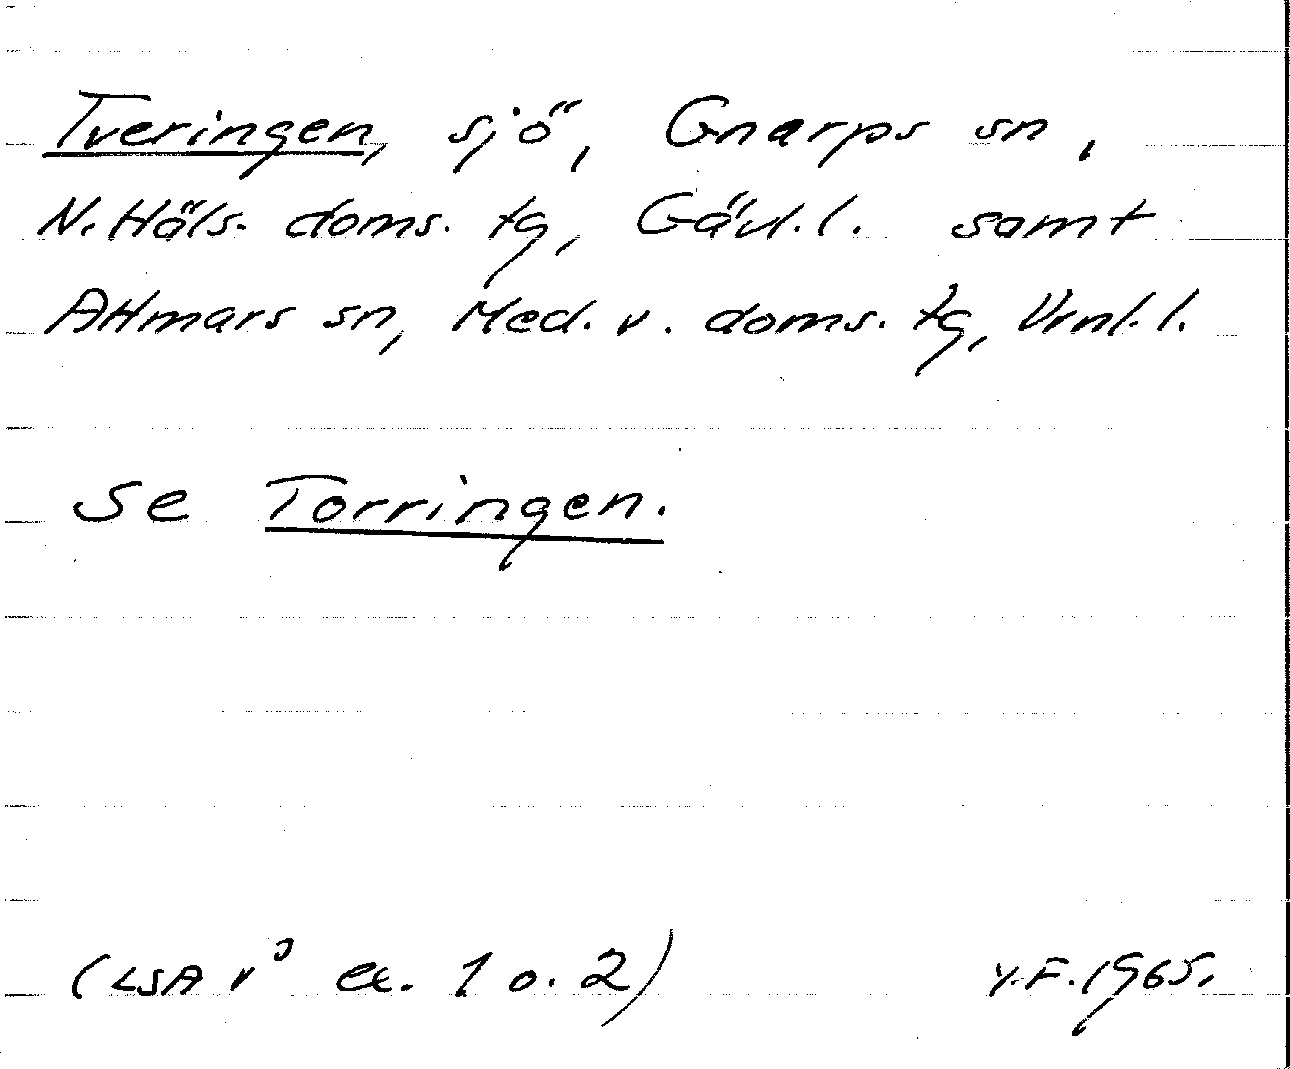 Tveringen, sjö, Gnarps sn,
N. Häls. doms. tg, Gävl. l. samt
Attmars sn, Med. v. doms. tg, Vrnl. l.
se Torringen.
(LSA v⁾ ex. 1 o. 2) Y.F. 1965.